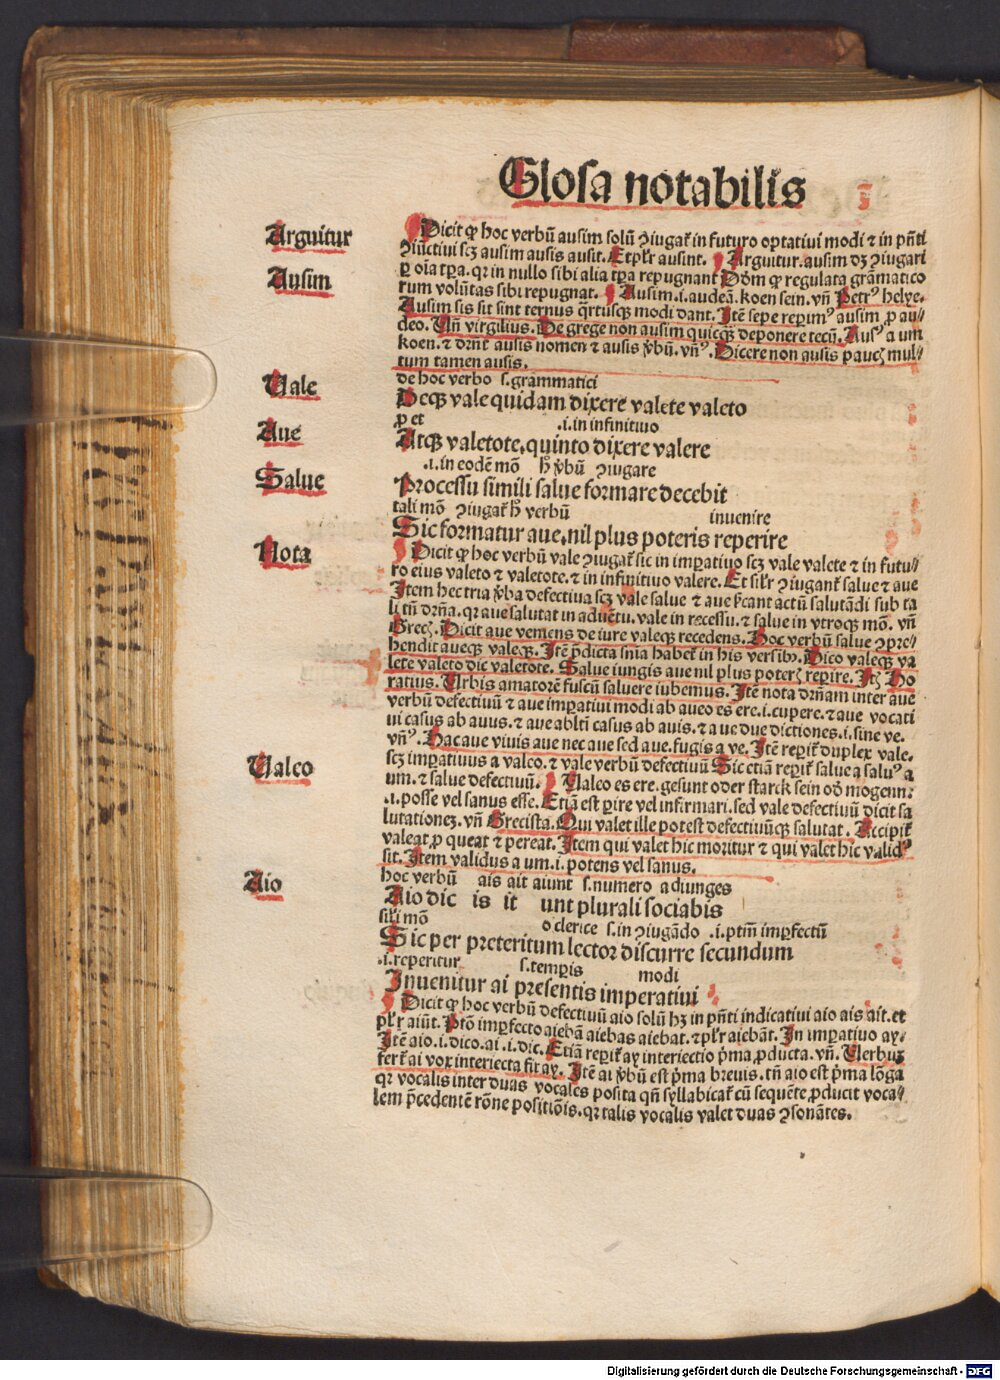 Glosa notabilis
Arguitur
Dicit ꝙ hoc verbū ausim solū ꝯiugat̄ in futuro optatiui modi ⁊ in pn̄ti
ꝯiūctiui scꝫ ausim ausis ausit. Et plr̄ ausint. Arguitur. ausim dꝫ ꝯiugari
Ausim
ꝑ oīa tꝑa. qr in nullo sibi alia tꝑa repugnant Dōm ꝙ regulata grāmatico
rum volūtas sibi repugnat. Ausim .i. audeā. koen sein. vn̄ Petrꝰ helye.
Ausim sis sit sint ternus q̄rtusqꝫ modi dant. Itē sepe reperimꝰ ausim ꝓ au⸗
deo. Vn̄ virgilius. De grege non ausim quicqꝫ deponere tecū. Ausꝰ a um
koen. ⁊ dn̄t ausis nomen ⁊ ausis v̄bū. vn̄ꝰ. Dicere non ausis ꝑ aucꝫ mul⸗
tum tamen ausis.
de hoc verbo s. grammatici
Vale
Deqꝫ vale quidam dixere valete valeto
ꝑ et .i. in infinitiuo
Aue
Atqꝫ valetote, quinto dixere valere
.i. in eodē mō hꝰ v̄bū ꝯiugare
Salue
Processu simili salue formare decebit
tali mō ꝯiugat̄ hꝰ verbū inuenire
Sic formatur aue, nil plus poteris reperire
Nota
Dicit ꝙ hoc verbū vale ꝯiugat̄ sic in imꝑatiuo scꝫ vale valete ⁊ in futu⸗
ro eius valeto ⁊ valetote. ⁊ in infinitiuo valere. Et silr̄ ꝯiugant̄ salue ⁊ aue
Item hec tria v̄ba defectiua scꝫ vale salue ⁊ aue p̄cant actū salutādi sub ta
li tn̄ drn̄a. qr aue salutat in aduētu. vale in recessu. ⁊ salue in vtroqꝫ mō. vn̄
Grecꝫ. Dicit aue veniens de iure valeqꝫ recedens. Hoc verbū salue ꝯpre⸗
hendit aueqꝫ valeqꝫ. Itē p̄dicta sn̄ia habet̄ in his versibꝫ. Dico valeqꝫ va
lete valeto dic valetote. Salue iungis aue nil plus poterꝫ reꝑire. Itꝫ Ho
ratius. Urbis amatorē fuscū saluere iubemus. Itē nota drn̄am inter aue
verbū defectiuū ⁊ aue imꝑatiui modi ab aueo es ere .i. cupere. ⁊ aue vocati
ui casus ab auus. ⁊ aue ablti casus ab auis. ⁊ a ue due dictiones .i. sine ve.
vn̄ꝰ. Hac aue viuis aue nec aue sed aue. fugis a ve. Itē reꝑit̄ duplex vale.
scꝫ imꝑatiuus a valeo. ⁊ vale verbū defectiuū Sic etiā reꝑit̄ salue a saluꝰ a
Valeo
um. ⁊ salue defectiuū. Valeo es ere. gesunt oder starck sein od̄ mogenn.
.i. posse vel sanus esse. Etiā est ꝑire vel infirmari. sed vale defectiuū dicit sa
lutationeꝫ. vn̄ Grecista. Qui valet ille potest defectiuūqꝫ salutat. Accipit̄
valeat ꝓ queat ⁊ pereat. Item qui valet hic moritur ⁊ qui valet hic validꝰ
sit. Item validus a um .i. potens vel sanus.
hoc verbū ais ait aiunt s. numero adiunges
Aio
Aio dic is it unt plurali sociabis
sili mō o clerice s. in ꝯiugādo .i. ptm̄ imꝑfectū
Sic per preteritum lector discurre secundum
.i. reperitur s. temꝑis modi
Inuenitur ai presentis imperatiui
Dicit ꝙ hoc verbū defectiuū aio solū hꝫ in pn̄ti indicatiui aio ais ait. et
plr̄ aiūt. Ptō imꝑfecto aiebā aiebas aiebat. ⁊ plr̄ aiebāt. In imꝑatiuo ay.
Itē aio .i. dico. ai .i. dic. Etiā reꝑit̄ ay interiectio p̄ma ꝓducta. vn̄. Verbuꝫ
fert̄ ai vox interiecta fit ay. Itē ai v̄bū est p̄ma breuis. tn̄ aio est p̄ma lōga
qr vocalis inter duas vocales posita qn̄ syllabicat̄ cū sequēte ꝓducit voca⸗
lem p̄cedentē rōne positiōis. qr talis vocalis valet duas ꝯsonātes.
Digitalisierung gefördert durch die Deutsche Forschungsgemeinschaft - DFG